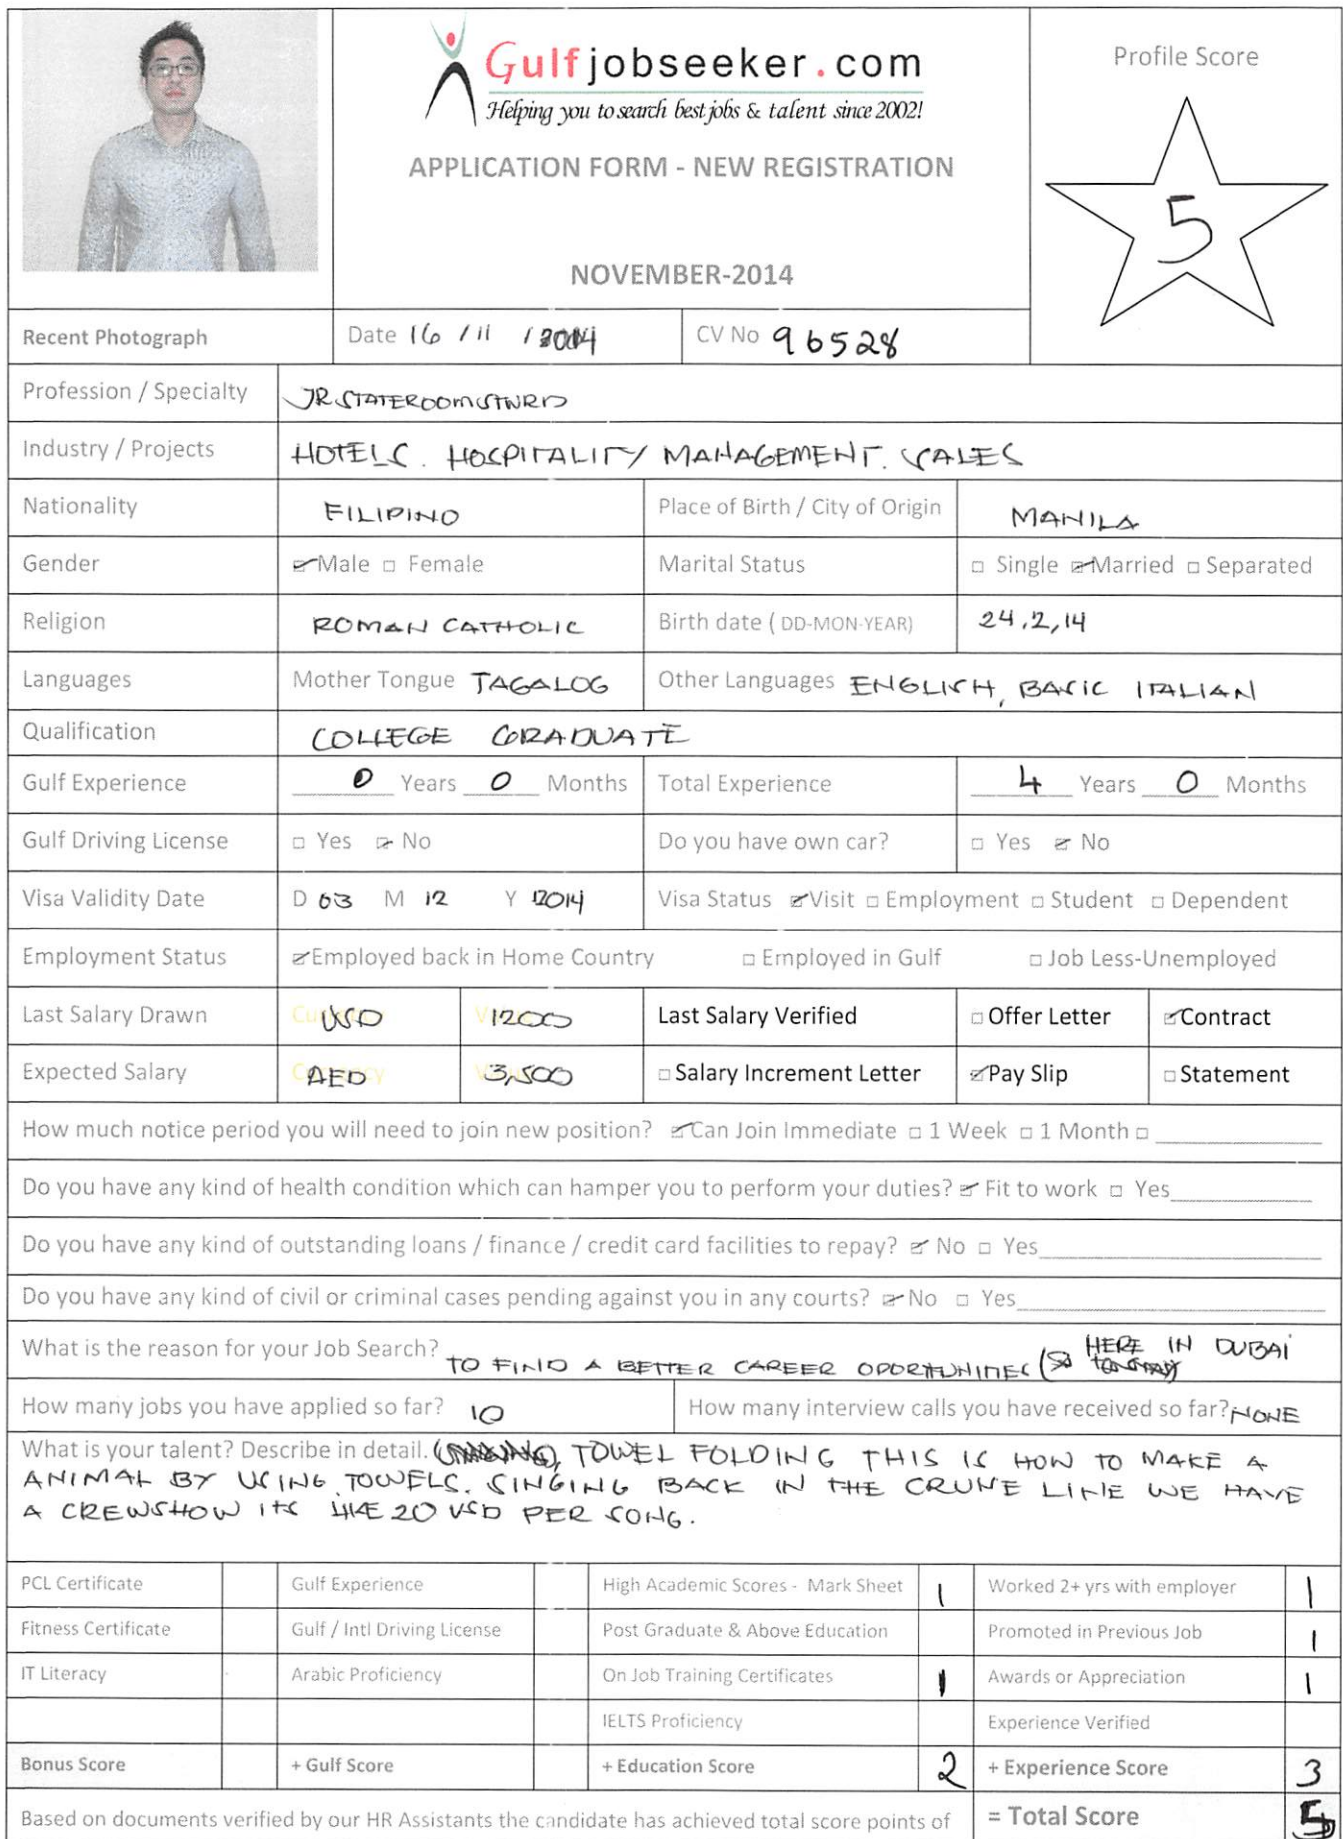 Gulfjobseeker.com
Helping you to search best jobs & talent since 2002!
APPLICATION FORM - NEW REGISTRATION
NOVEMBER-2014
Profile Score
5
Recent Photograph Date 16 / 11 / 2014 CV No 96528
Profession / Specialty JR.STATEROOMSTWRD
Industry / Projects HOTELS. HOSPITALITY MANAGEMENT. SALES
Nationality FILIPINO Place of Birth / City of Origin MANILA
Gender ☑ Male □ Female Marital Status □ Single ☑ Married □ Separated
Religion ROMAN CATHOLIC Birth date ( DD-MON-YEAR) 24,2,14
Languages Mother Tongue TAGALOG Other Languages ENGLISH, BASIC ITALIAN
Qualification COLLEGE GRADUATE
Gulf Experience 0 Years 0 Months Total Experience 4 Years 0 Months
Gulf Driving License □ Yes ☑ No Do you have own car? □ Yes ☑ No
Visa Validity Date D 03 M 12 Y 2014 Visa Status ☑ Visit □ Employment □ Student □ Dependent
Employment Status ☑ Employed back in Home Country □ Employed in Gulf □ Job Less-Unemployed
Last Salary Drawn USD 1200 Last Salary Verified □ Offer Letter ☑ Contract
Expected Salary AED 3,500 □ Salary Increment Letter ☑ Pay Slip □ Statement
How much notice period you will need to join new position? ☑ Can Join Immediate □ 1 Week □ 1 Month □
Do you have any kind of health condition which can hamper you to perform your duties? ☑ Fit to work □ Yes
Do you have any kind of outstanding loans / finance / credit card facilities to repay? ☑ No □ Yes
Do you have any kind of civil or criminal cases pending against you in any courts? ☑ No □ Yes
What is the reason for your Job Search? TO FIND A BETTER CAREER OPORTUNITIES HERE IN DUBAI
How many jobs you have applied so far? 10 How many interview calls you have received so far? NONE
What is your talent? Describe in detail. TOWEL FOLDING THIS IS HOW TO MAKE A
ANIMAL BY USING TOWELS. SINGING BACK IN THE CRUNE LINE WE HAVE
A CREWSHOW ITS LIKE 20 USD PER SONG.
PCL Certificate Gulf Experience High Academic Scores - Mark Sheet 1 Worked 2+ yrs with employer 1
Fitness Certificate Gulf / Intl Driving License Post Graduate & Above Education Promoted in Previous Job 1
IT Literacy Arabic Proficiency On Job Training Certificates 1 Awards or Appreciation 1
IELTS Proficiency Experience Verified
Bonus Score + Gulf Score + Education Score 2 + Experience Score 3
Based on documents verified by our HR Assistants the candidate has achieved total score points of = Total Score 5